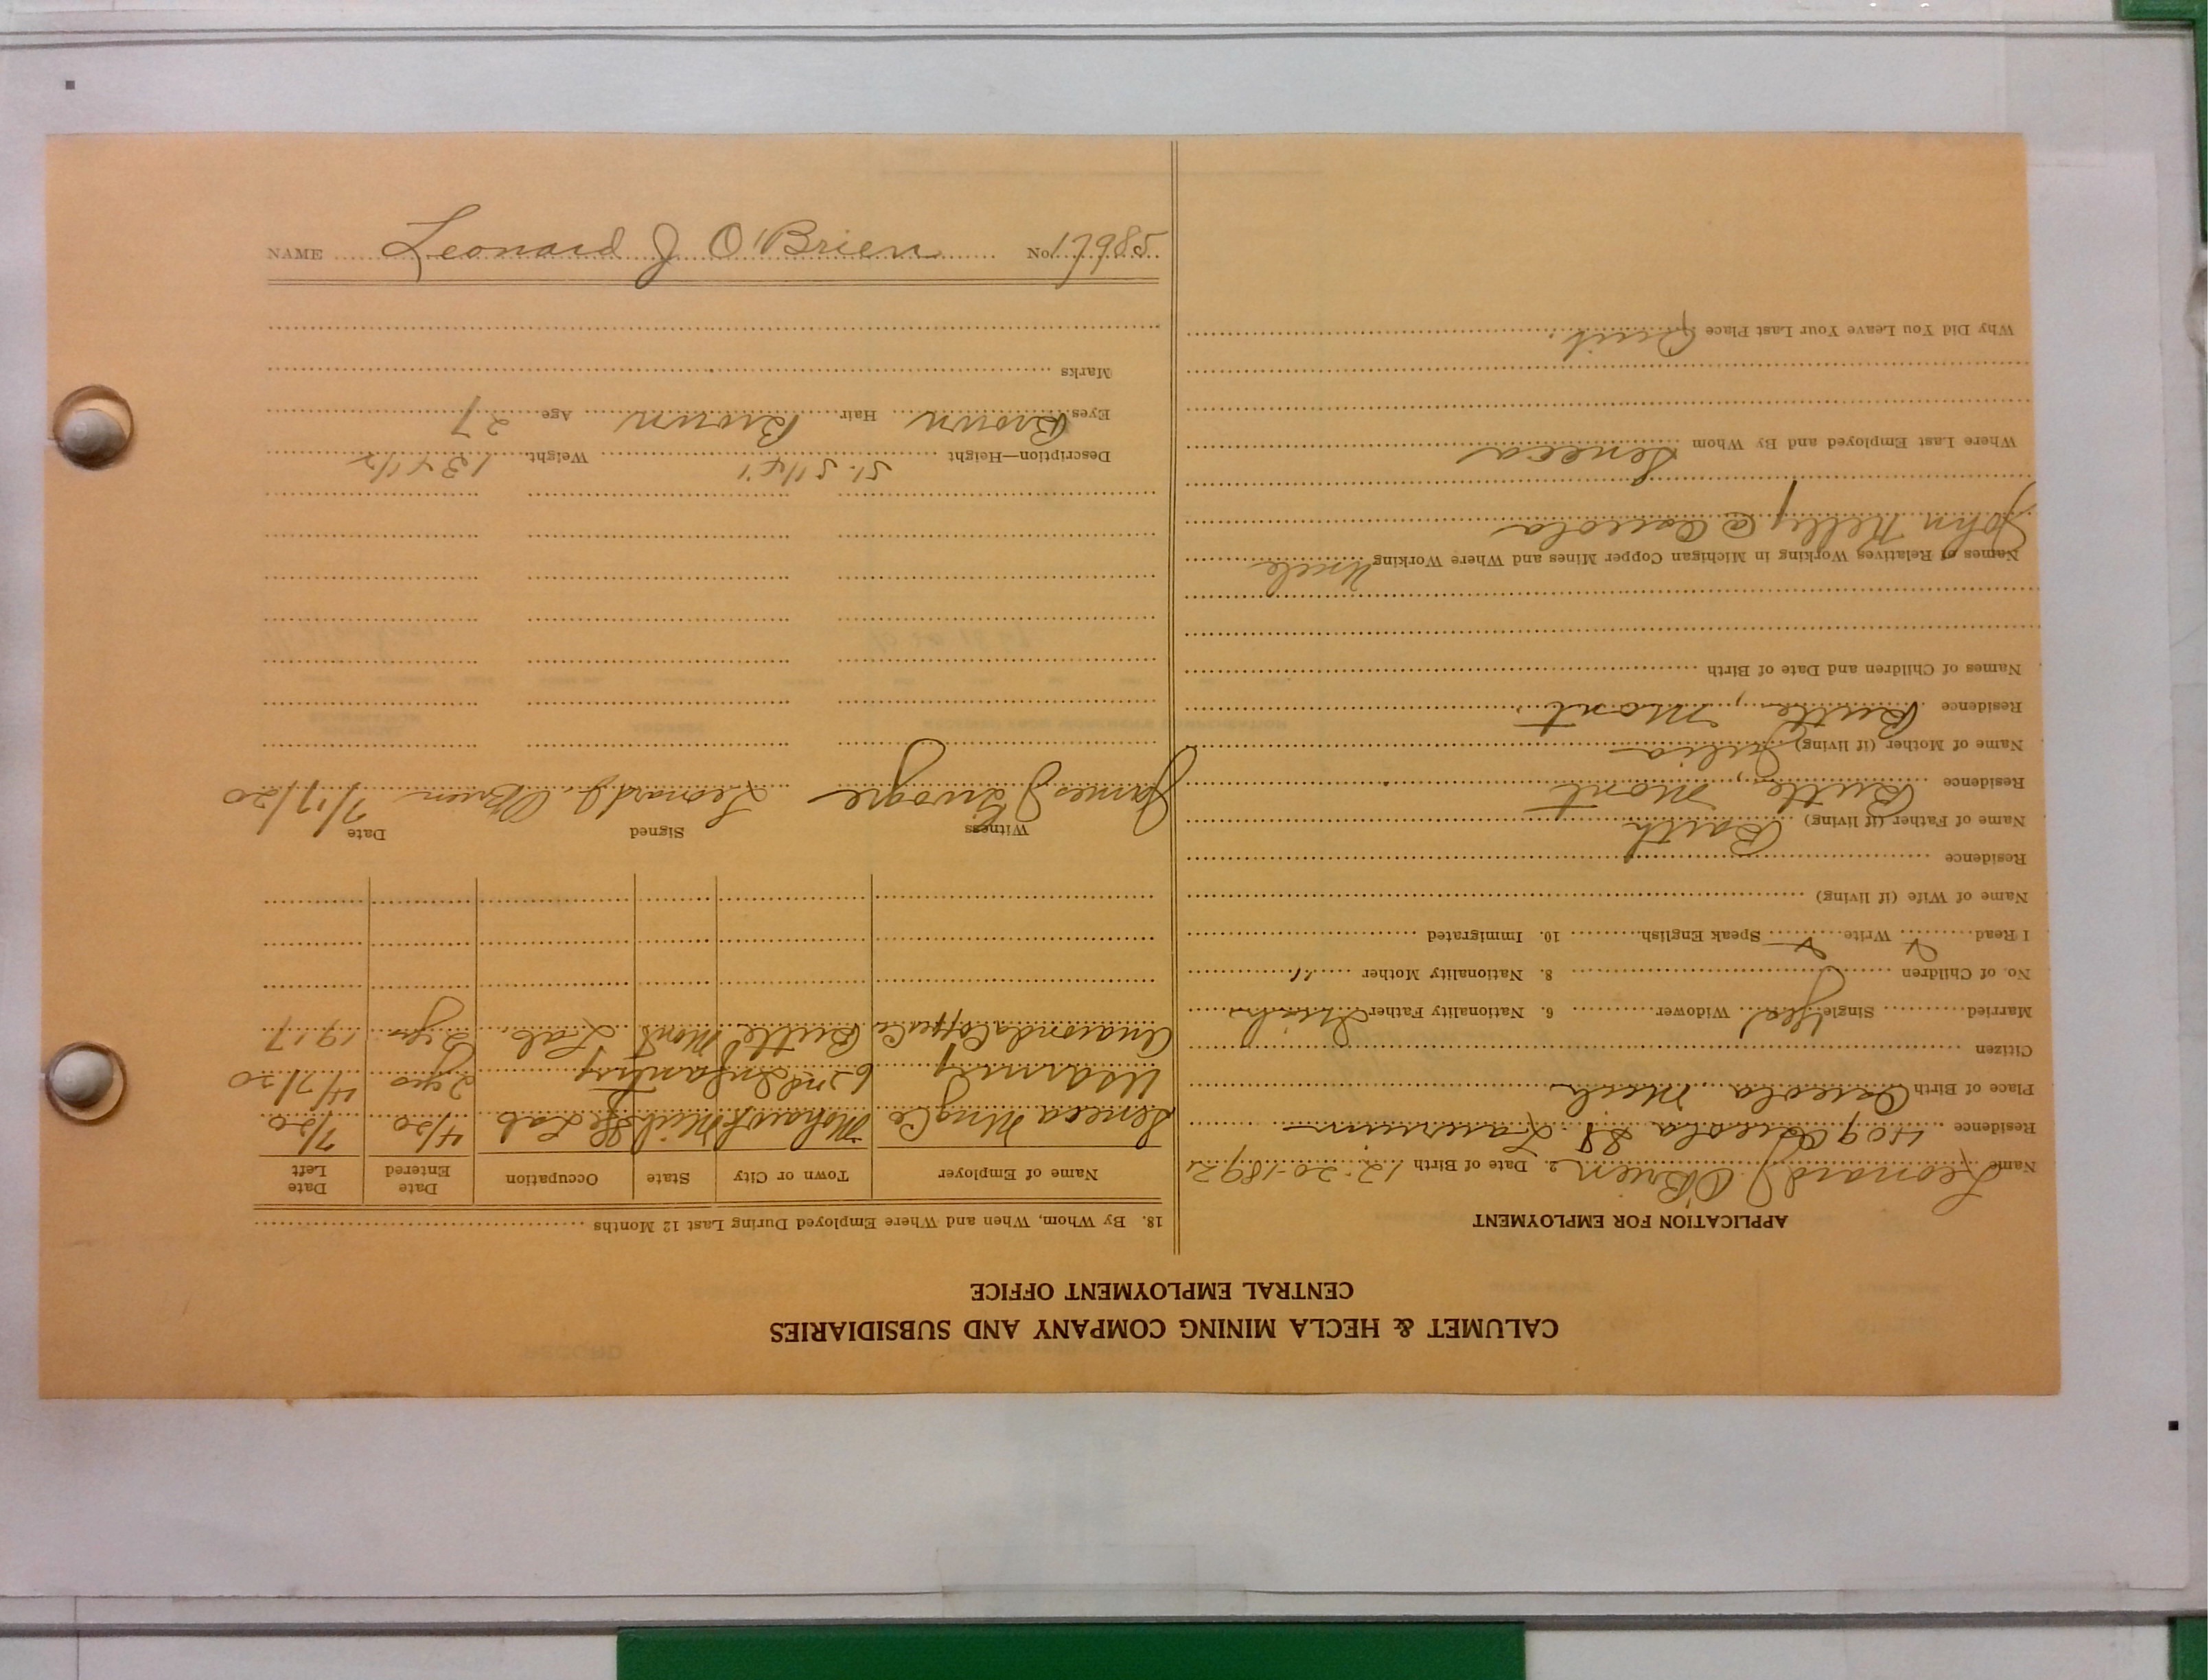 CALUMET & HECLA MINING COMPANY AND SUBSIDIARIES
CENTRAL EMPLOYMENT OFFICE
APPLICATION FOR EMPLOYMENT
Name Leonard J O'Brien 2. Date of Birth 12-20-1892
Residence 409 Osceola St Laurium
Place of Birth Osceola Mich
Citizen
Married Single Yes Widower 6. Nationality Father Irish
No. of Children 8. Nationality Mother "
I Read Write Speak English 10. Immigrated
Name of Wife (if living)
Residence
Name of Father (if living) Barth
Residence Butte, Mont
Name of Mother (if living) Julia
Residence Butte, Mont
Names of Children and Date of Birth
Names of Relatives Working in Michigan Copper Mines and Where Working Uncle
John Kelly @ Osceola
Where Last Employed and By Whom Seneca
Why Did You Leave Your Last Place Quit.
18. By Whom, When and Where Employed During Last 12 Months
Name of Employer Town or City State Occupation Date Entered Date Left
Seneca Mng Co Mohawk Mich Lab 4/20 7/20
US Army 62nd Infantry 2 yrs 4/7/20
Anaconda Copper Co Butte Mont Lab 2 yrs 1917
Witness Signed Date
James J Leonard J. O'Brien 7/17/20
Description—Height 5'. 5 1/4" Weight 134 1/2
Eyes Brown Hair Brown Age 27
Marks
NAME Leonard J O'Brien No. 17985